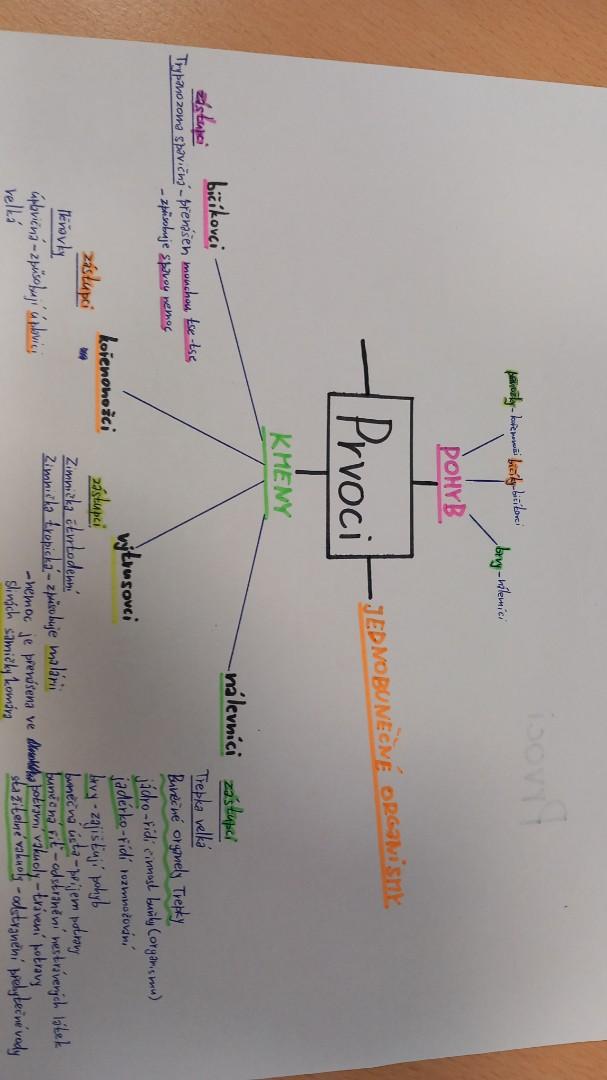 Prvoci
JEDNOBUNĚČNÉ ORGANISMY
POHYB
panožky - kořenonožci
bičíky - bičíkovci
brvy - nálevníci
KMENY
bičíkovci
zástupci
Trypanozoma spavičná - přenášen mouchou tse-tse
- způsobuje spavou nemoc
kořenonožci
zástupci
Měňavky
úplavičná - způsobují úplavici
velká
výtrusovci
zástupci
Zimnička čtvrtodenní
Zimnička tropická - způsobuje malárii
- nemoc je přenášena ve
slinách samičky komára
nálevníci
zástupci
Trepka velká
Buněčné orgamely Trepky
jádro - řídí činnost buňky (organismu)
jadérko - řídí rozmnožování
brvy - zajišťují pohyb
buněčná ústa - příjem potravy
buněčná řiť - odstranění nestrávených látek
potravní vakuoly - trávení potravy
stažitelné vakuoly - odstranění přebytečné vody
Prvoci